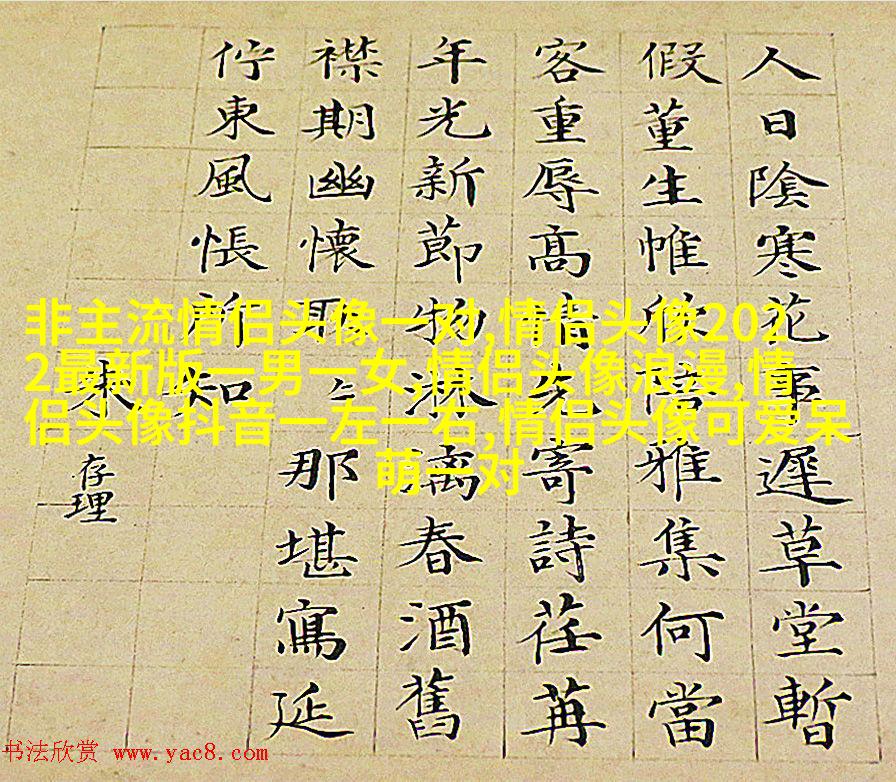 人日陰寒花事遲草堂暫
假董生帷欣陪雅集何當
客重辱高情先寄詩荏苒
年光新節物淋漓春酒舊
襟期幽懷耿〻那堪寫延
佇東風悵所知
朱存理
非主流情侣头像一对,情侣头像202
2最新版一男一女,情侣头像浪漫,情
侣头像抖音一左一右,情侣头像可爱呆
萌一对
书法欣赏 www.yac8.com